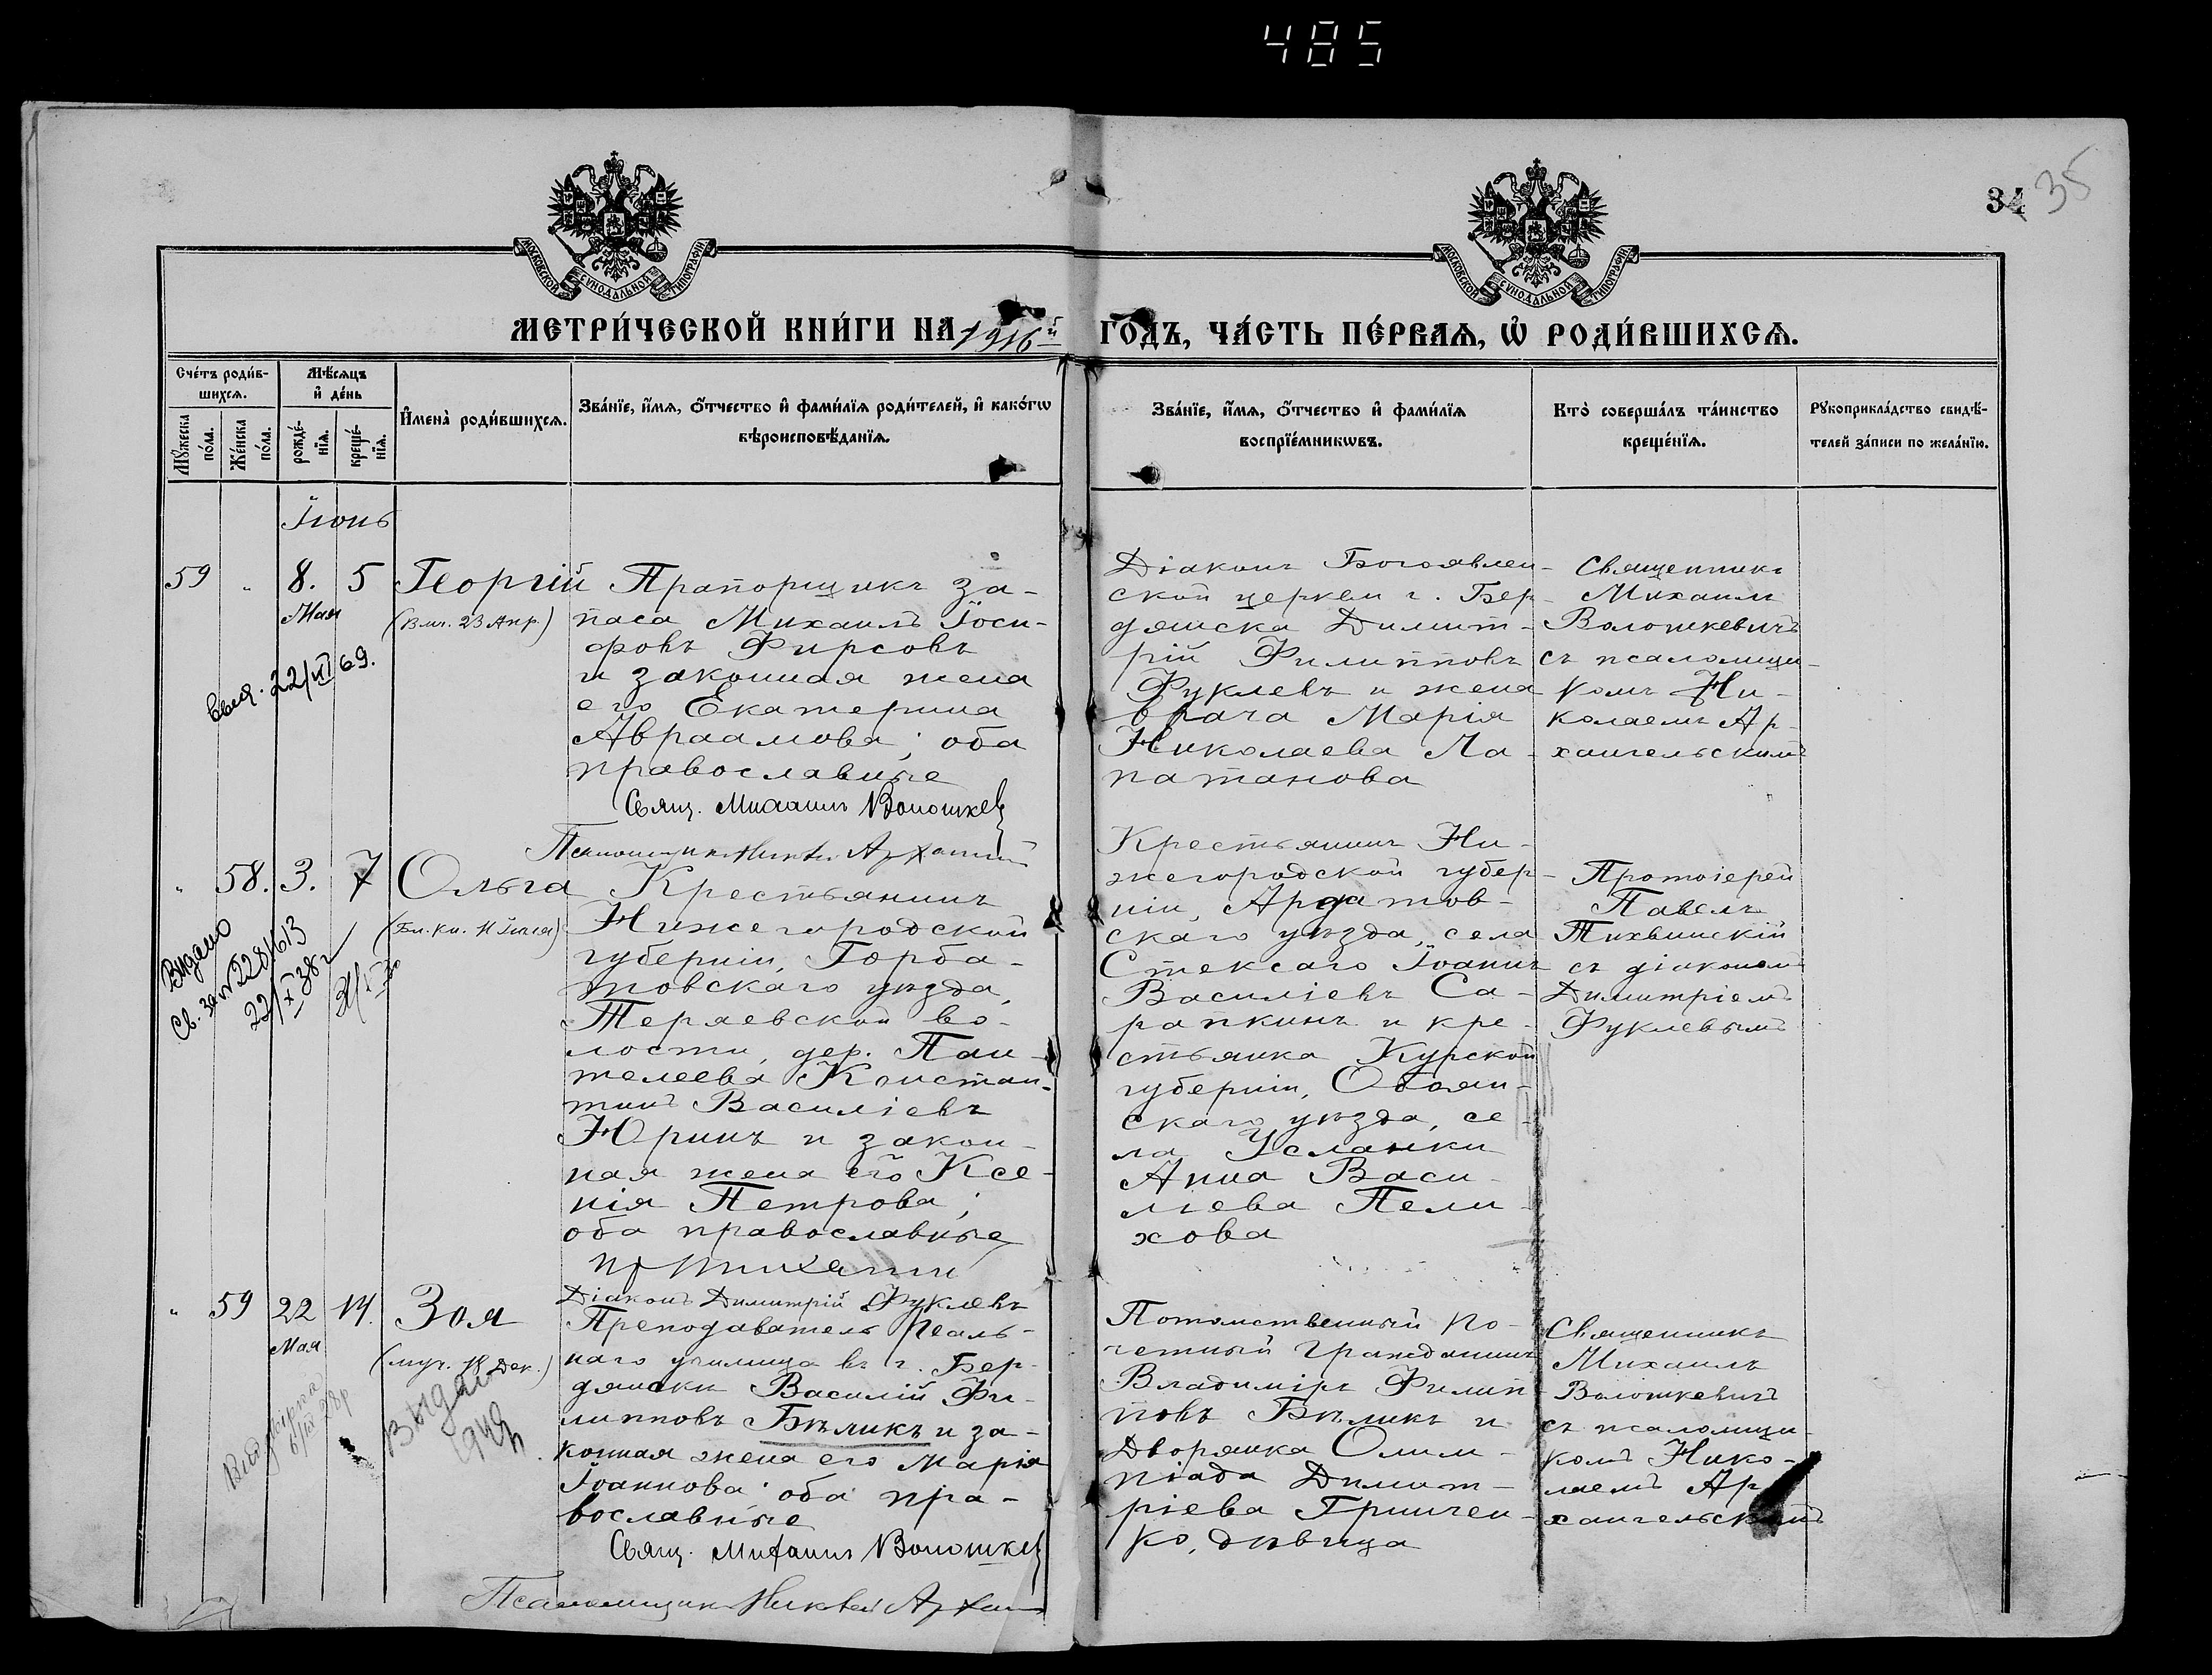 485
34 35
МОСКОВСКОЙ СѴНОДАЛЬНОЙ ТИПОГРАФІИ
МОСКОВСКОЙ СѴНОДАЛЬНОЙ ТИПОГРАФІИ
МЕТРИ́ЧЕСКОЙ КНИ́ГИ НА 1916й ГО́ДЪ, ЧА́СТЬ ПЕ́РВАѦ, Ѡ҆ РОДИ́ВШИХСѦ.
Сче́тъ роди́в-
шихсѧ.
Мꙋ́жеска по́ла.
Же́нска по́ла.
Мѣ́сѧцъ
и҆ де́нь
рожде́-
нїѧ.
креще́-
нїѧ.
И҆мена̀ роди́вшихсѧ.
Зва́нїе, и҆́мѧ, ѻ҆́тчество и҆ фами́лїѧ роди́телей, и҆ како́гѡ
вѣроисповѣ́данїѧ.
Зва́нїе, и҆́мѧ, ѻ҆́тчество и҆ фами́лїѧ
воспрїе́мникѡвъ.
Кто̀ соверша́лъ та́инство
креще́нїѧ.
Рꙋкоприкла́дство свидѣ́-
телей за́писи по жела́нїю.
Іюнь
59 " 8. 5 Георгій
Мая
(Вмч. 23 Апр.)
Прапорщикъ за-
паса Михаилъ Іоси-
фовъ Фирсовъ
и законная жена
его Екатерина
Авраамова; оба
православные
Свящ. Михаилъ Волошкев
Псаломщикъ Николай Архангел
Діаконъ Богоявлен-
ской церкви г. Бер-
дянска Димит-
рій Филипповъ
Фуклевъ и жена
врача Марія
Николаева Ла-
патанова
Священникъ
Михаилъ
Волошкевичъ
съ псаломщи-
комъ Ни-
колаемъ Ар-
хангельскимъ
22/VI 69.
" 58. 3. 7 Ольга
(Бл. кн. 11 Іюля)
Видано
Св. за № 2281613
22/X 38 г
Крестьянинъ
Нижегородской
губерніи, Горба-
товскаго уѣзда,
Теряевской во-
лости, дер. Пан-
телеева Констан-
тинъ Василіевъ
Юринъ и закон-
ная жена его Ксе-
нія Петрова;
оба православные
Діаконъ Димитрій Фуклевъ
Крестьянинъ Ни-
жегородской губер-
ніи, Ардатов-
скаго уѣзда, села
Стексаго Іоаннъ
Василіевъ Са-
рапкинъ и кре-
стьянка Курской
губерніи, Обоян-
скаго уѣзда, се-
ла Усланки
Анна Васи-
лиева Пели-
хова
Протоіерей
Павелъ
Тихвинскій
съ діакономъ
Димитріемъ
Фуклевымъ
" 59 22 14. Зоя
Мая
(муч. 18 Дек.)
Преподаватель Реаль-
наго училища въ г. Бер-
дянски Василій Фи-
липповъ Бѣликъ и за-
конная жена его Марія
Іоаннова оба пра-
вославные
Свящ. Михаилъ Волошкев
Псаломщикъ Николай Архан
Потомственный По-
четный Гражданинъ
Владиміръ Филип-
повъ Бѣликъ и
Дворянка Олим-
піада Димит-
ріева Гринчен-
ко, дѣвица
Священникъ
Михаилъ
Волошкевичъ
съ псаломщи-
комъ Нико-
лаемъ Ар-
хангельскимъ